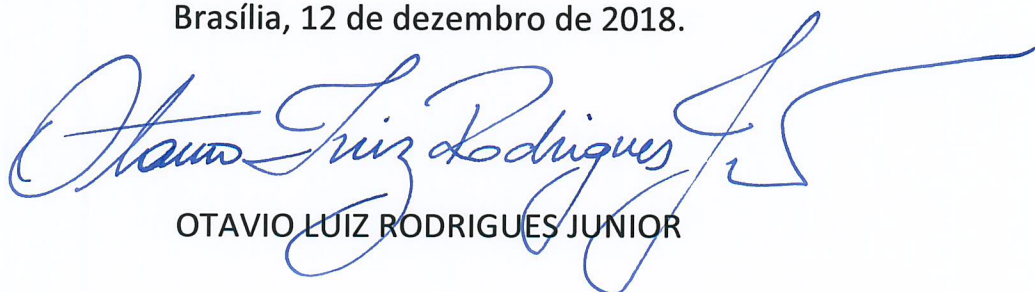 Brasília, 12 de dezembro de 2018.
Otavio Luiz Rodrigues Jr
OTAVIO LUIZ RODRIGUES JUNIOR